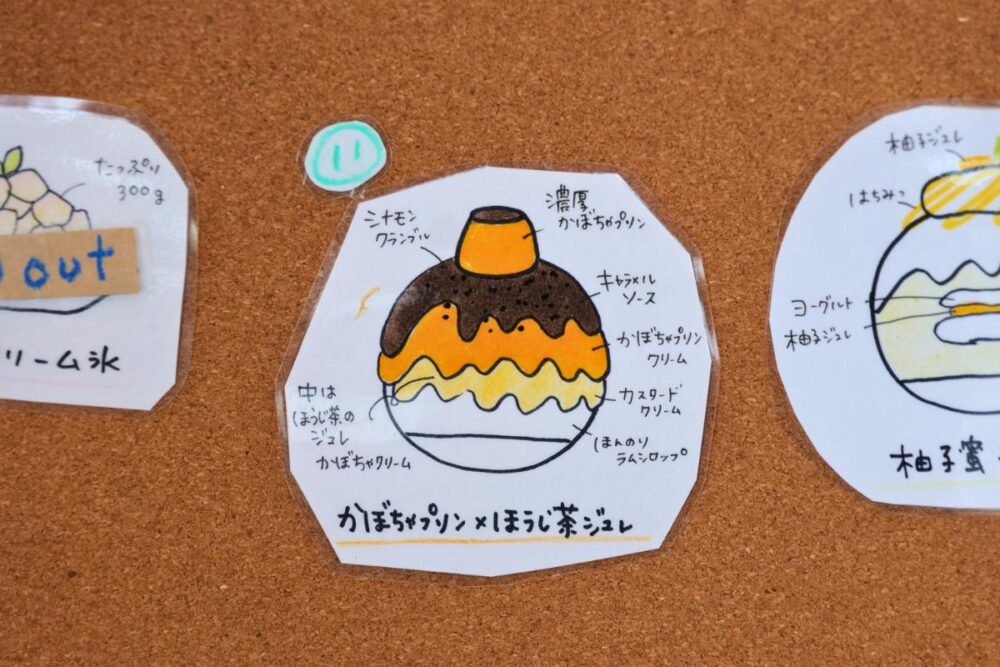 たっぷり
300g
out
リーム氷
11
シナモン
クランブル
濃厚
かぼちゃプリン
キャラメル
ソース
かぼちゃプリン
クリーム
カスタード
クリーム
ほんのり
ラムシロップ
中は
ほうじ茶の
ジュレ
かぼちゃクリーム
かぼちゃプリン×ほうじ茶ジュレ
柚子ジュレ
はちみつ
ヨーグルト
柚子ジュレ
柚子蜜